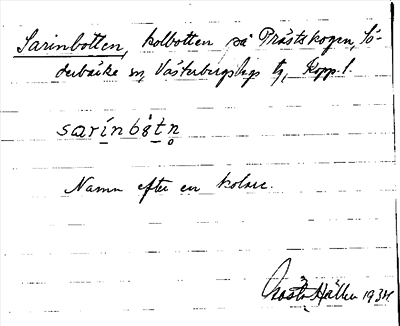 Sarinbotten, kolbotten på Prästskogen, Sö-
derbärke sn, Västerbergslags tg, Kopp. l.
sarinbåtn
Namn efter en kolare.
Gösta Hallen 1934